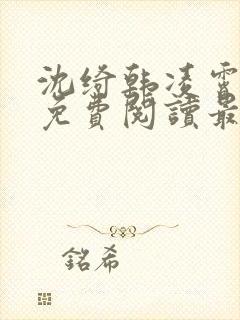 沈绮韩凌霄
免費閱讀最
銘希